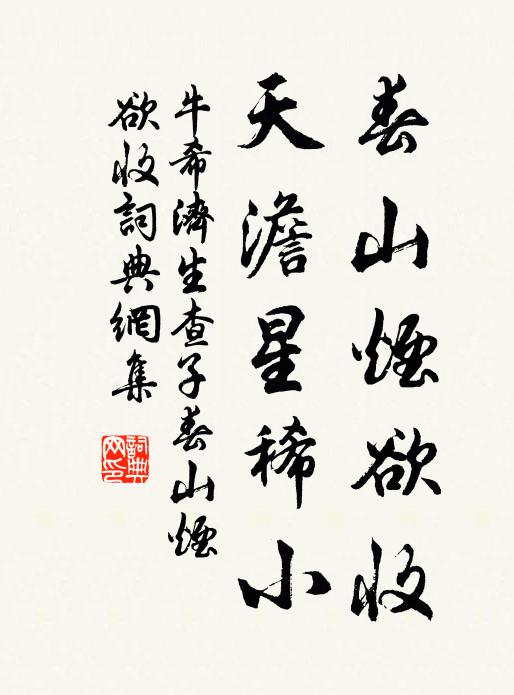 春山煙欲收
天澹星稀小
牛希濟生查子春山煙
欲收詞典網集
詞典網印